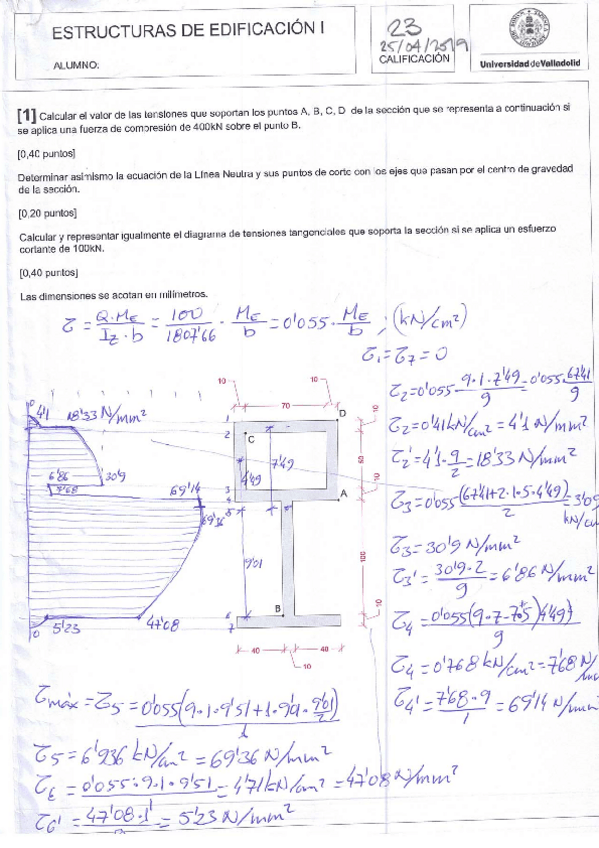 ESTRUCTURAS DE EDIFICACIÓN I
ALUMNO:
23
25/04/2019
CALIFICACIÓN
Universidad de Valladolid
[1] Calcular el valor de las tensiones que soportan los puntos A, B, C, D de la sección que se representa a continuación si
se aplica una fuerza de compresión de 400kN sobre el punto B.
[0,40 puntos]
Determinar asimismo la ecuación de la Línea Neutra y sus puntos de corte con los ejes que pasan por el centro de gravedad
de la sección.
[0,20 puntos]
Calcular y representar igualmente el diagrama de tensiones tangenciales que soporta la sección si se aplica un esfuerzo
cortante de 100kN.
[0,40 puntos]
Las dimensiones se acotan en milímetros.
τ = Q·ME / Iz·b = 100 / 1807'66 · ME / b = 0'055 · ME / b ; (kN/cm²)
τ1 = τ7 = 0
τ2 = 0'055 · 9·1·7'49 / 9 = 0'055 · 67'41 / 9
τ2 = 0'41 kN/cm² = 4'1 N/mm²
τ2' = 4'1 · 9/2 = 18'33 N/mm²
τ3 = 0'055 · (67'41+2·1·5·4'49) / 2 = 3'09 kN/cm²
τ3 = 30'9 N/mm²
τ3' = 30'9·2 / 9 = 6'86 N/mm²
τ4 = 0'055(9·7-7·5)4'49 / 9
τ4 = 0'768 kN/cm² = 7'68 N/mm²
τ4' = 7'68·9 / 1 = 69'14 N/mm²
0
4'1
18'33 N/mm²
6'86
30'9
5'68
69'14
69'36
47'08
5'23
0
10
10
70
10
50
10
100
10
40
40
10
1
2
3
4
5
6
7
D
C
A
B
7'49
4'49
9'01
τmáx = τ5 = 0'055(9·1·9'51+1·9'01·9'01/2) / 1
τ5 = 6'936 kN/cm² = 69'36 N/mm²
τ6 = 0'055·9·1·9'51 / 1 = 4'71 kN/cm² = 47'08 N/mm²
τ6' = 47'08·1 / 9 = 5'23 N/mm²